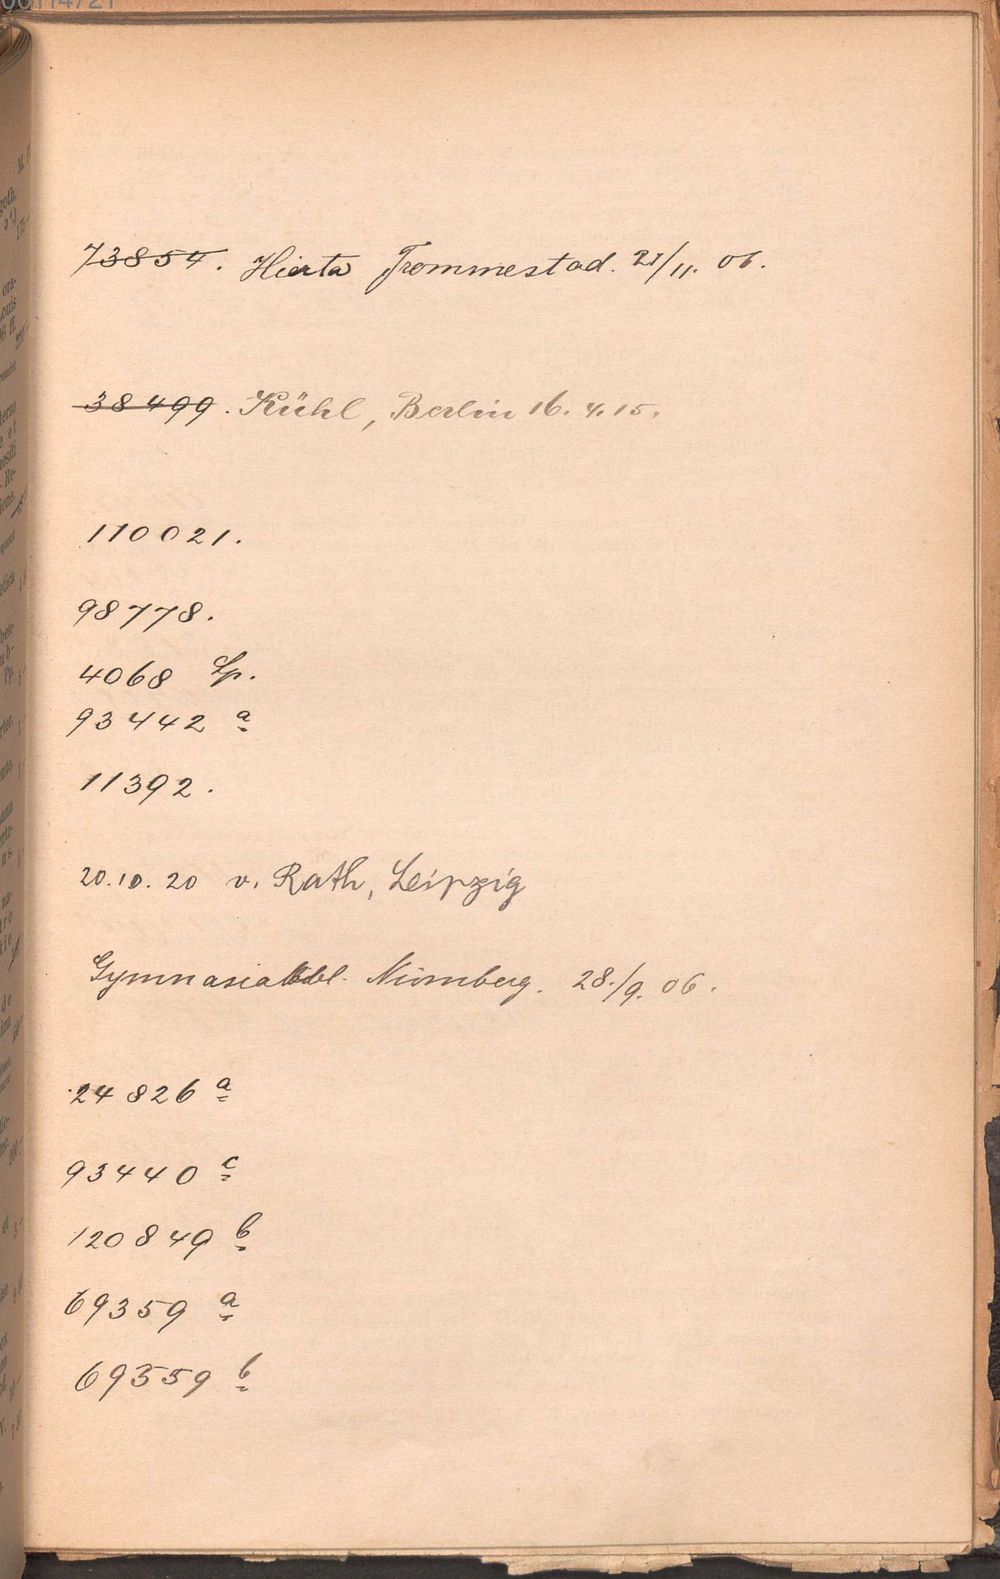 73854. Hierta Frommestad. 21/11. 06.
38499. Kühl, Berlin 16. 4. 15.
110021.
98778.
4068 Lp.
93442 a
11392.
20.10.20 v. Rath, Leipzig
Gymnasialbibl. Nürnberg. 28./9. 06.
24826 a
93440 c
120849 b
69359 a
69359 b